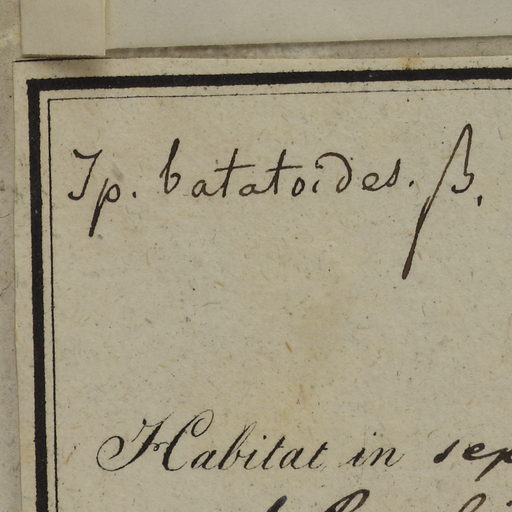 Ip. batatoides. β.
Habitat in sep